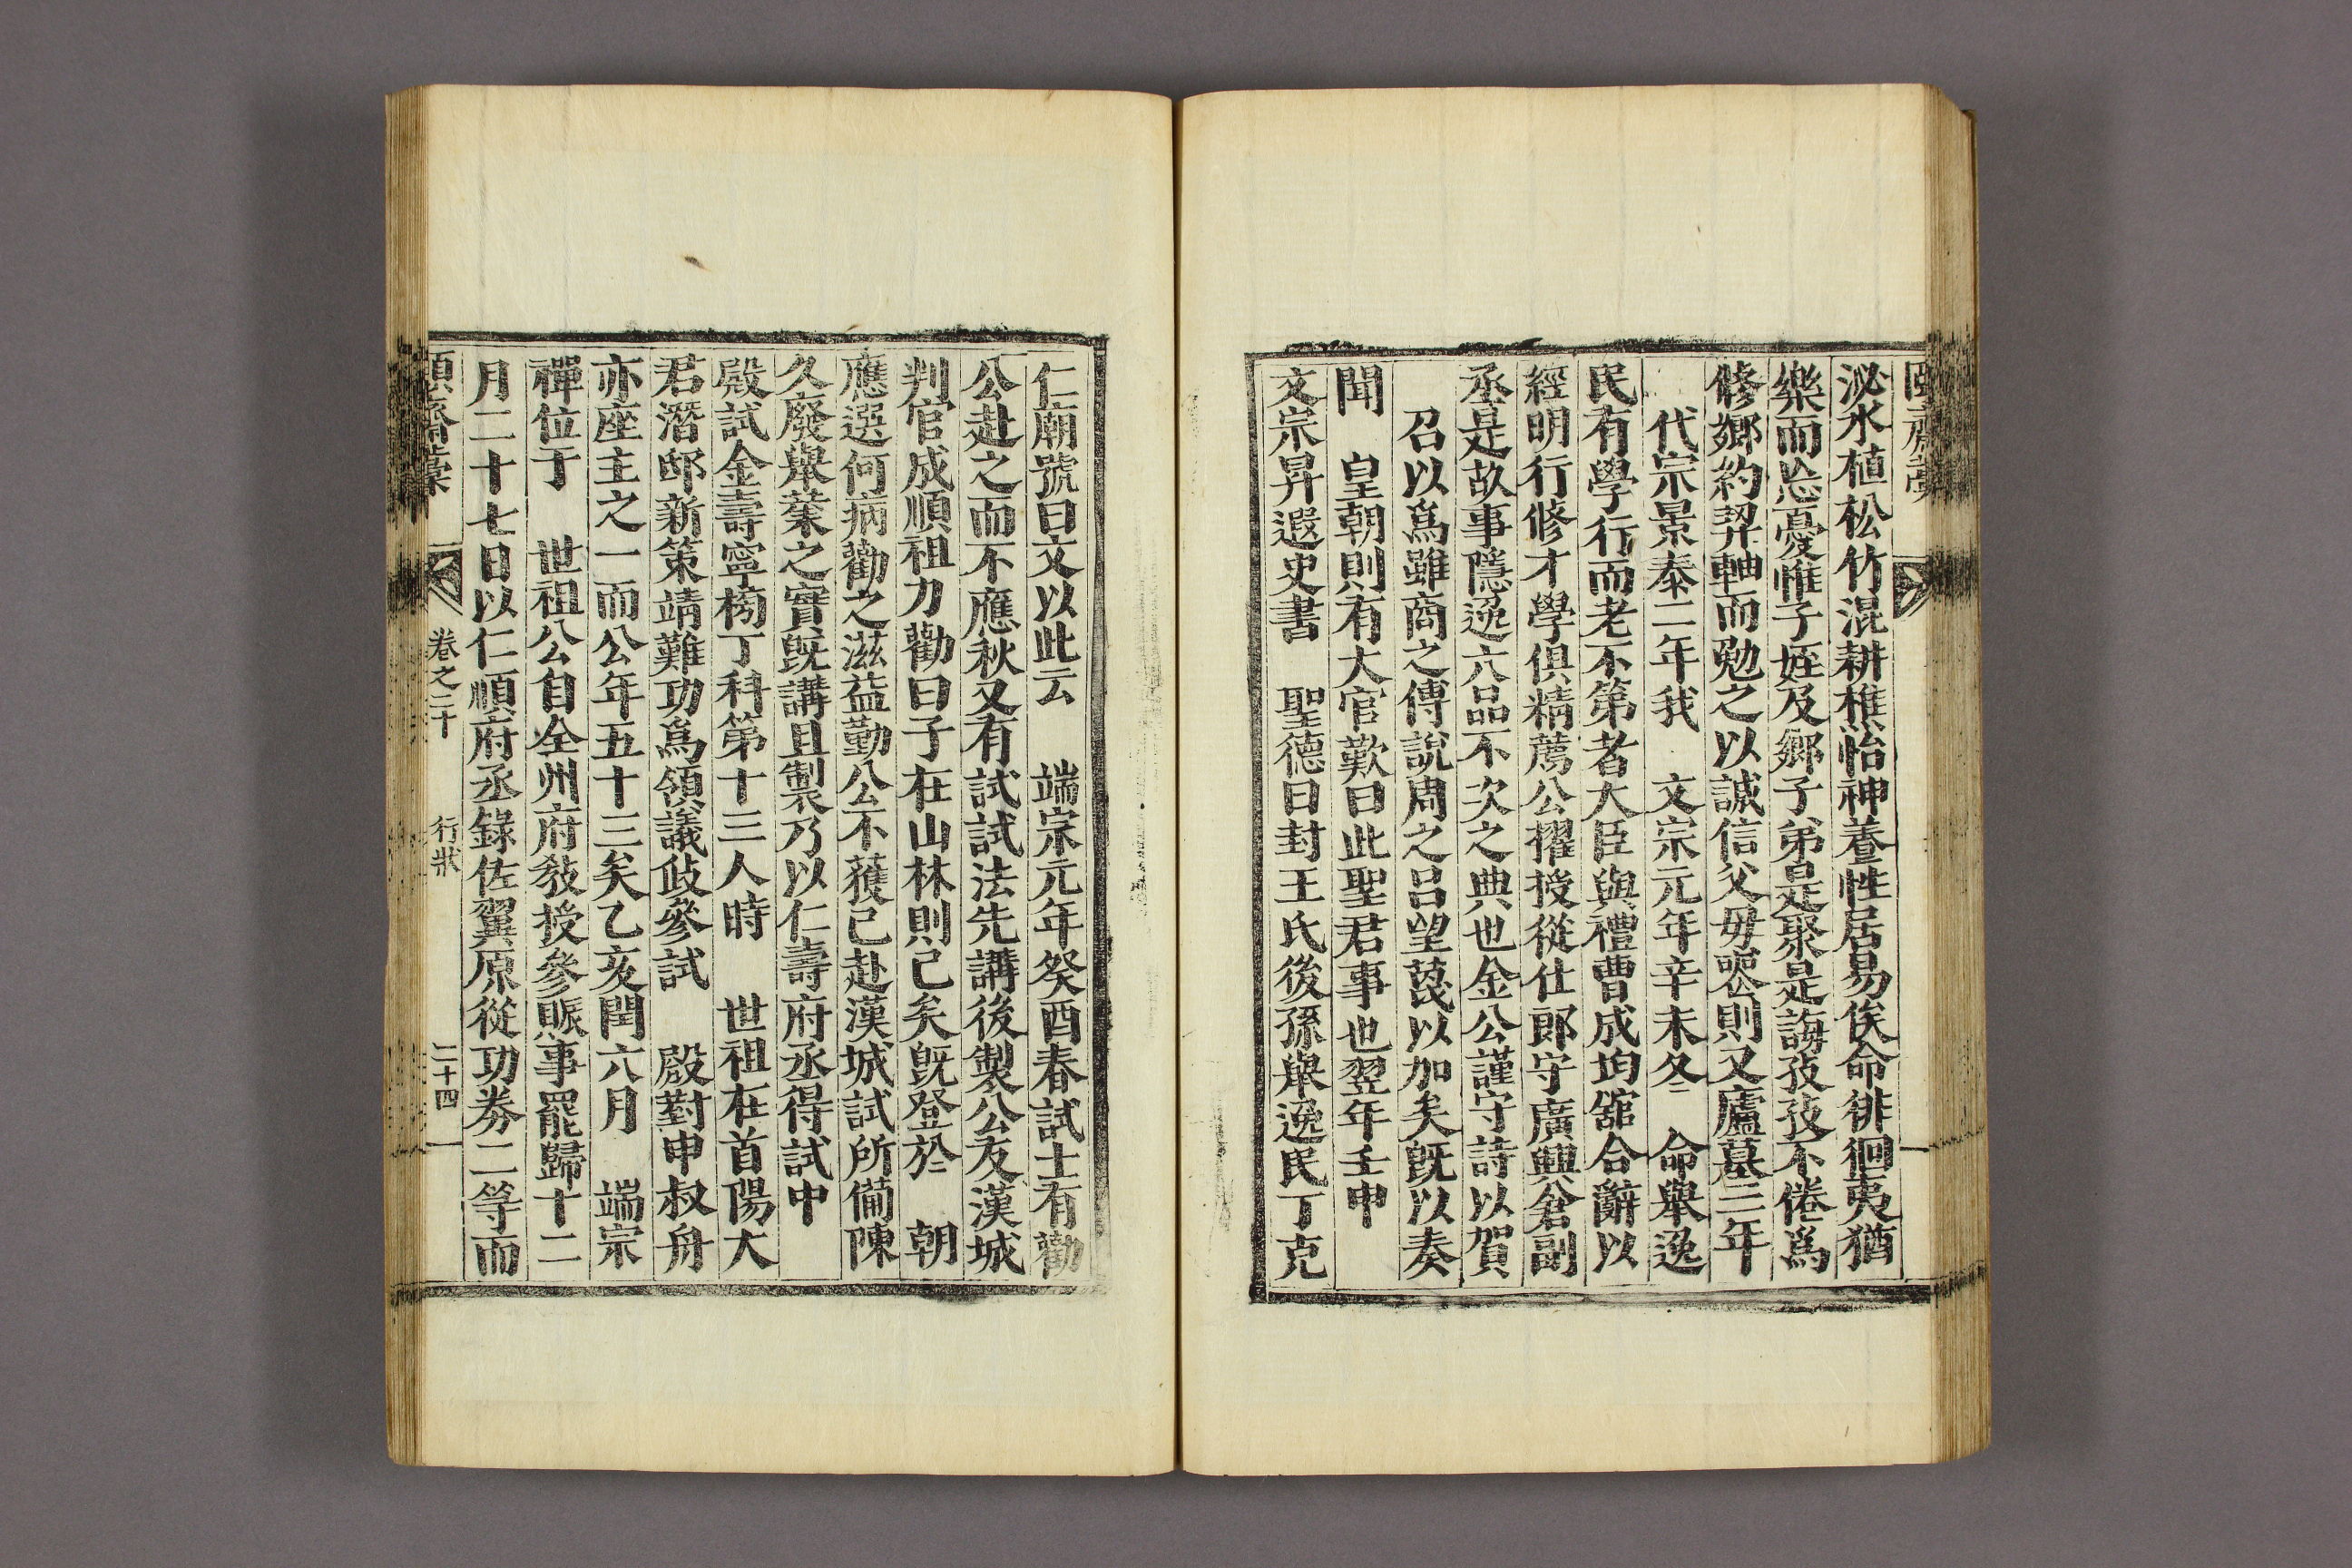 泌水植松竹混耕樵怡神養性居易俟命徘徊夷猶
樂而忘憂惟子姪及鄉子弟是聚是誨孜孜不倦爲
修鄉約契軸而勉之以誠信父毋喪則又廬墓三年
代宗景泰二年我 文宗元年辛未冬 命舉逸
民有學行而老不第者大臣與禮曹成均舘合辭以
經明行修才學俱精薦公擢授從仕郎守廣興倉副
丞是故事隱逸六品不次之典也金公謹守詩以賀
召以爲雖商之傅說周之呂望蔑以加矣旣以奏
聞 皇朝則有大官歎曰此聖君事也翌年壬申
文宗昇遐史書 聖德曰封王氏後孫舉逸民丁克
仁廟號曰文以此云 端宗元年癸酉春試士有勸
公赴之而不應秋又有試試法先講後製公友漢城
判官成順祖力勸曰子在山林則已矣旣登於 朝
應選何病勸之滋益勤公不獲已赴漢城試所備陳
久廢舉業之實旣講且製乃以仁壽府丞得試中
殿試金壽寧榜丁科第十三人時 世祖在首陽大
君潛邸新策靖難功爲領議政參試 殿對申叔舟
亦座主之一而公年五十三矣乙亥閏六月 端宗
禪位于 世祖公自全州府教授參賑事罷歸十二
月二十七日以仁順府丞錄佐翼原從功券二等而
卷之二十 行狀 二十四